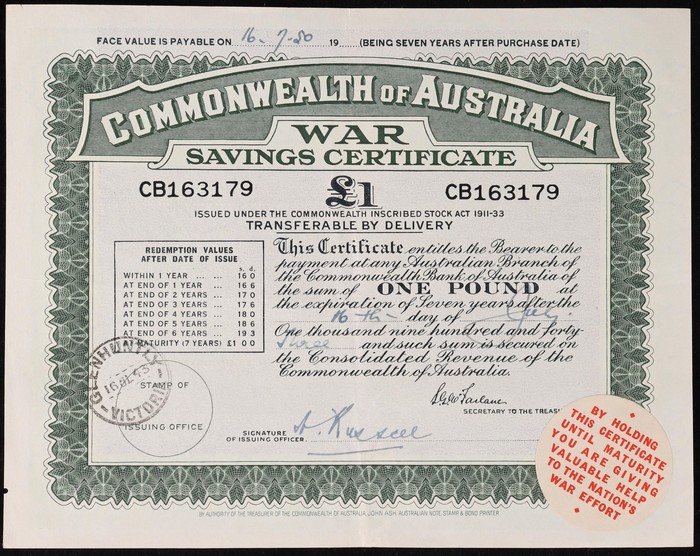 FACE VALUE IS PAYABLE ON 16-7-50 19...... (BEING SEVEN YEARS AFTER PURCHASE DATE)
COMMONWEALTH OF AUSTRALIA
WAR
SAVINGS CERTIFICATE
CB163179 £1 CB163179
ISSUED UNDER THE COMMONWEALTH INSCRIBED STOCK ACT 1911-33
TRANSFERABLE BY DELIVERY
REDEMPTION VALUES
AFTER DATE OF ISSUE
s. d.
WITHIN 1 YEAR ... ... 16 0
AT END OF 1 YEAR ... 16 6
AT END OF 2 YEARS ... 17 0
AT END OF 3 YEARS ... 17 6
AT END OF 4 YEARS ... 18 0
AT END OF 5 YEARS ... 18 6
AT END OF 6 YEARS ... 19 3
AT MATURITY (7 YEARS) £1 0 0
This Certificate entitles the Bearer to the
payment at any Australian Branch of
the Commonwealth Bank of Australia of
the sum of ONE POUND at
the expiration of Seven years after the
16th day of July
One thousand nine hundred and forty-
three and such sum is secured on
the Consolidated Revenue of the
Commonwealth of Australia.
GLENHUNTLY
16 JL 43
VICTORIA
STAMP OF
ISSUING OFFICE
SECRETARY TO THE TREAS
SIGNATURE
OF ISSUING OFFICER. A. Russell
BY HOLDING
THIS CERTIFICATE
UNTIL MATURITY
YOU ARE GIVING
VALUABLE HELP
TO THE NATION'S
WAR EFFORT
BY AUTHORITY OF THE TREASURER OF THE COMMONWEALTH OF AUSTRALIA JOHN ASH, AUSTRALIAN NOTE STAMP & BOND PRINTER